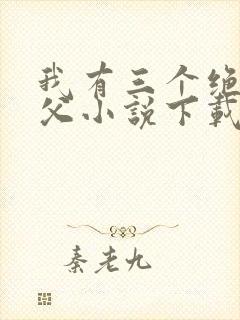 我有三个绝
父小说下载
秦老九